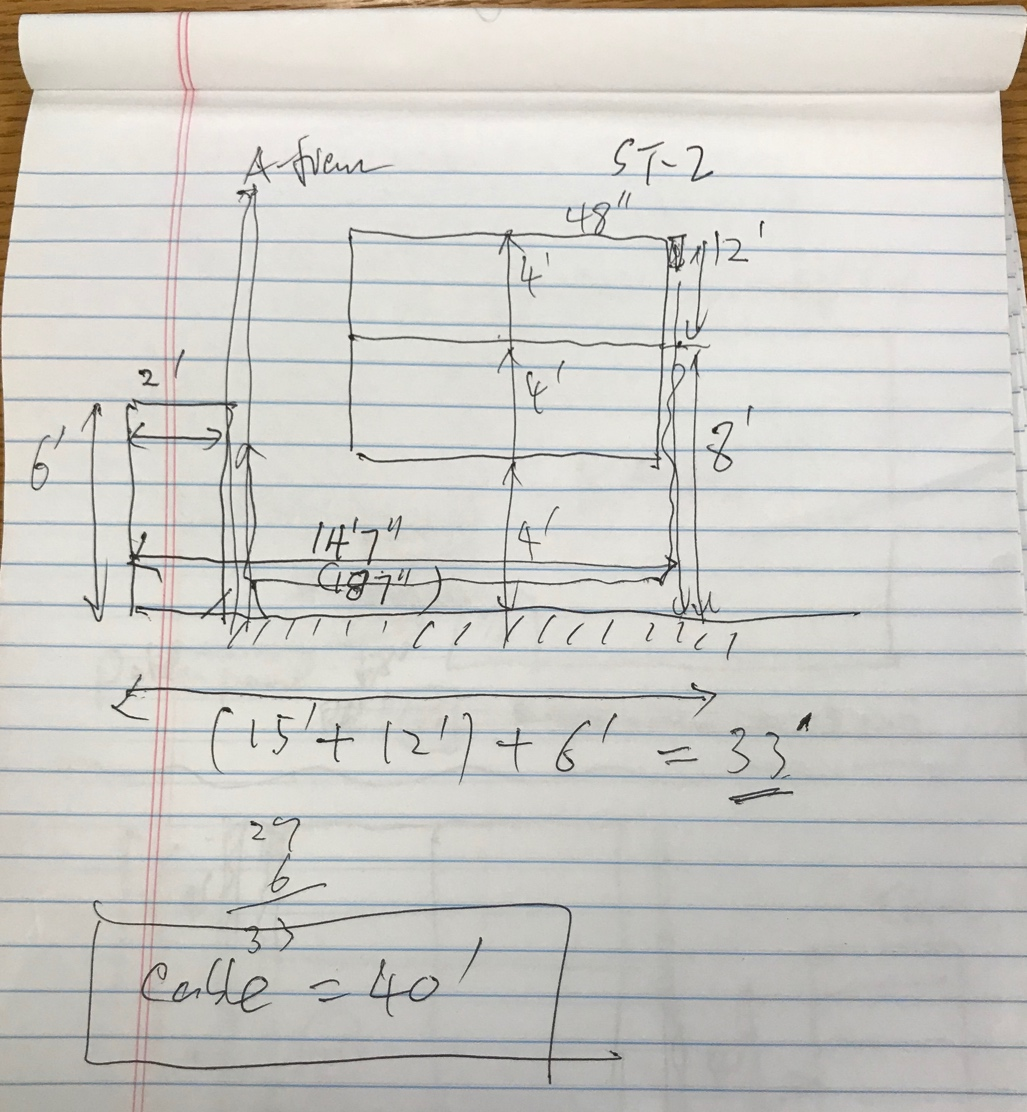 A-frem
ST-2
48"
12'
4'
2'
4'
6'
8'
14'7"
4'
(187")
(15' + 12') + 6' = 33'
27
6
33
Cable = 40'